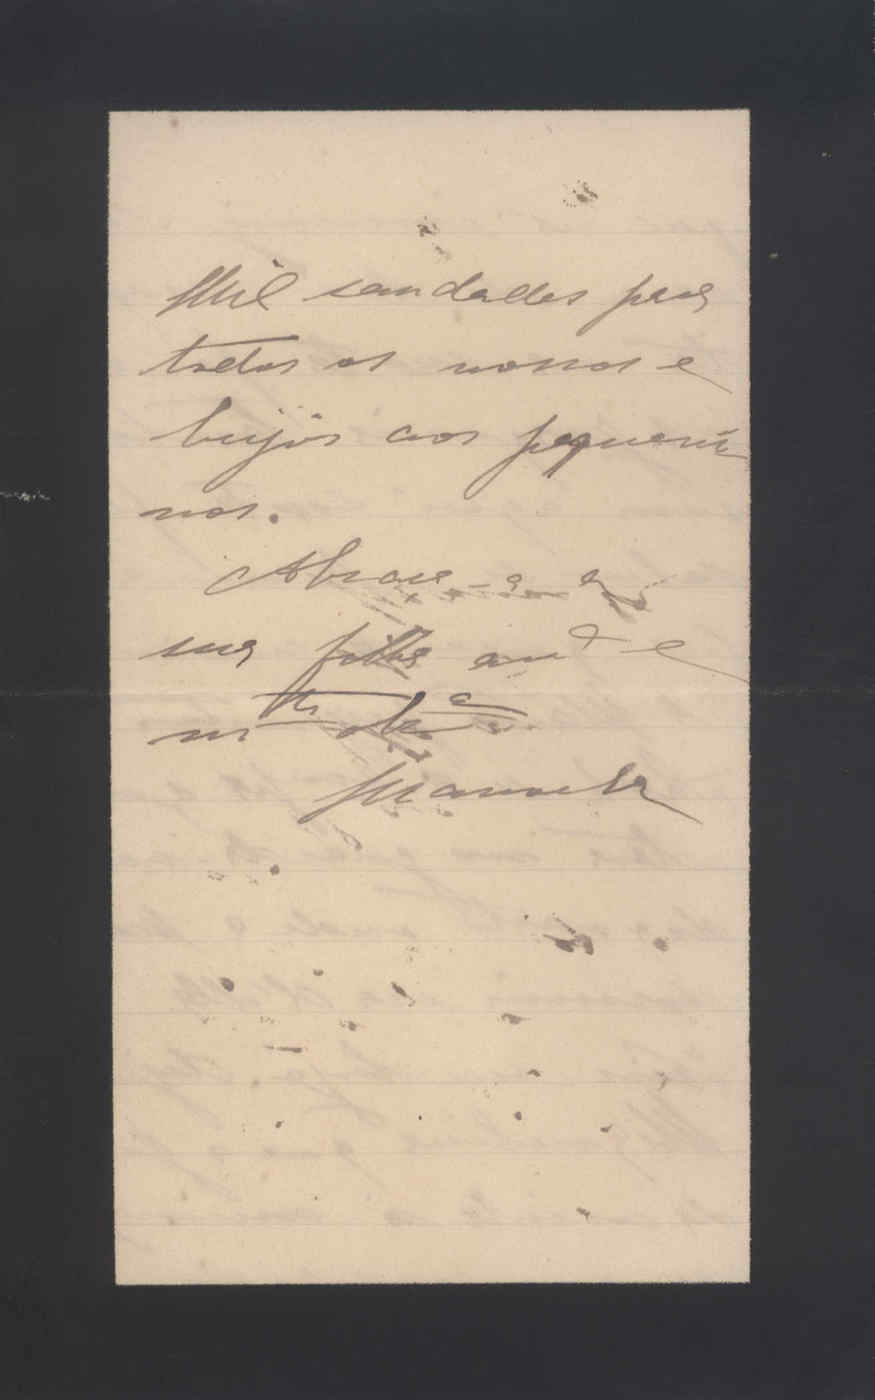 Mil saudades para
todos os nossos e
beijos aos pequeni
nos.
Abrace-a a
sua filha am.ᵃ e
m.ᵗᵒ ob.ᵃ
Manuela